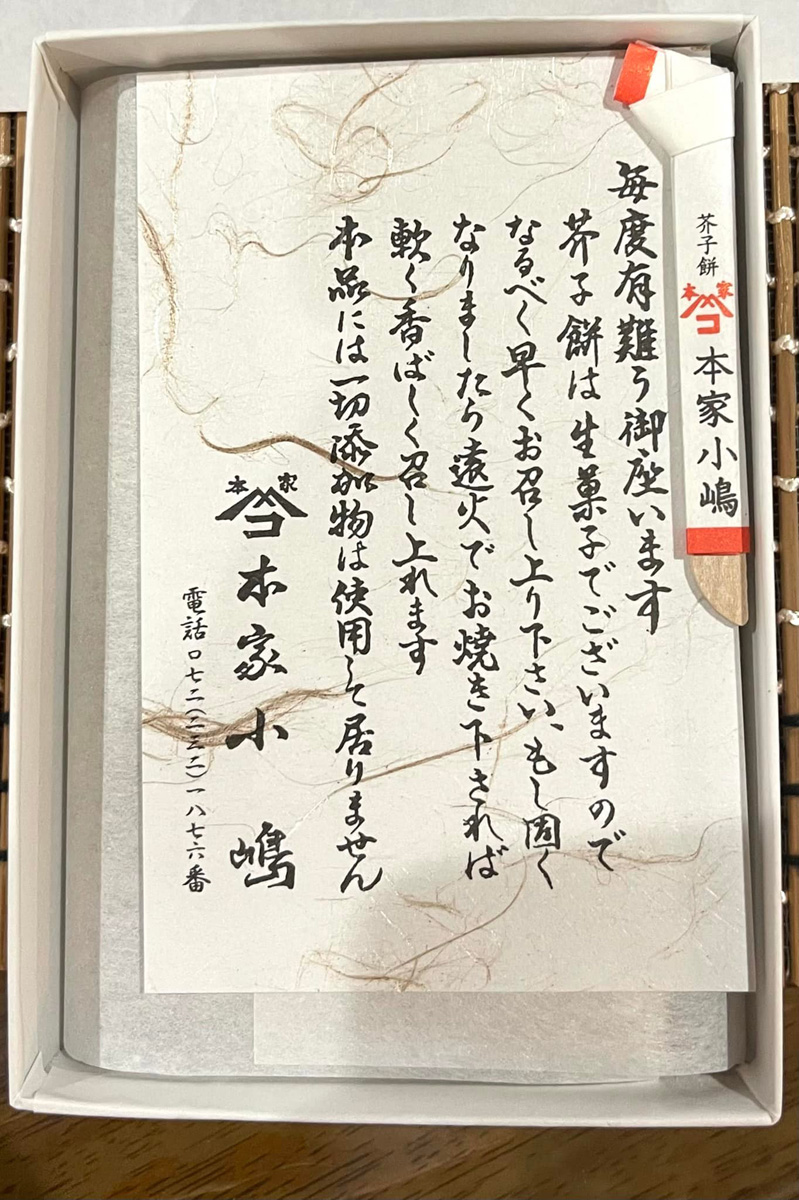 毎度有難う御座います
芥子餅は生菓子でございますので
なるべく早くお召し上り下さい、もし固く
なりましたら遠火でお焼き下されば
軟く香ばしく召し上れます
本品には一切添加物は使用して居りません
本家
コ
本家小嶋
電話〇七二(二三二)一八七六番
芥子餅
本家
コ
本家小嶋